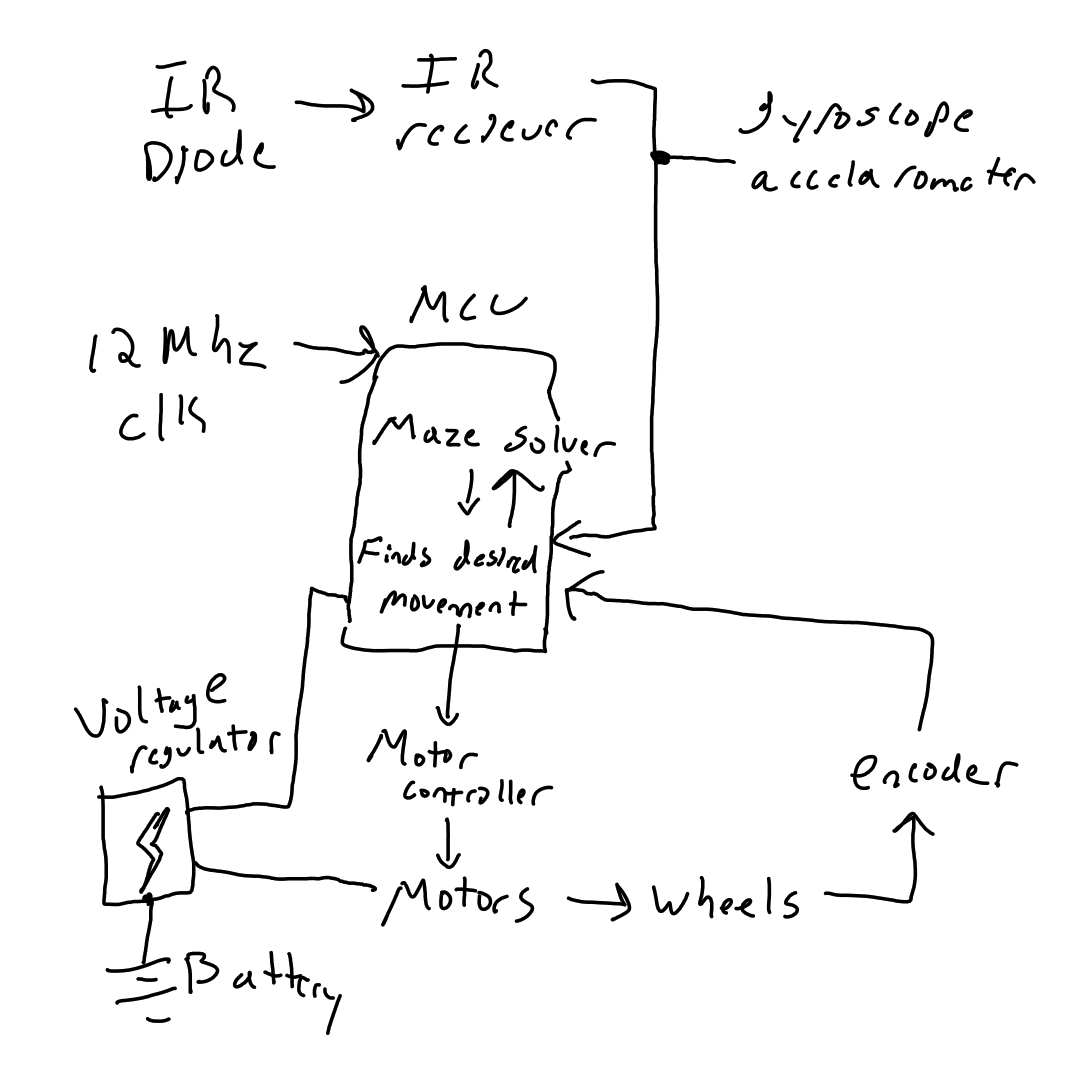 IR
Diode
IR
reciever
gyroscope
accelarometer
MCU
12 Mhz
clk
Maze solver
Finds desired
movement
Voltage
regulator
Motor
controller
encoder
Motors
wheels
Battery